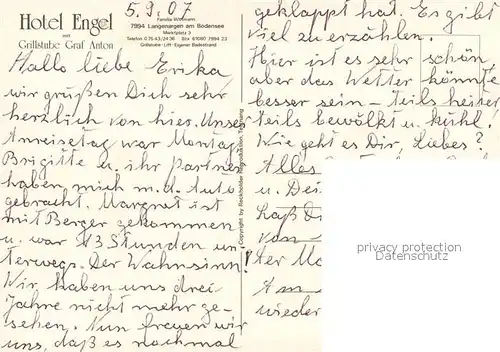 Hotel Engel
mit
Grillstube Graf Anton
5.9.07
Familie Wittmann
7994 Langenargen am Bodensee
Marktplatz 3
Telefon 0 75 43 / 24 36 Btx 41080 7994 23
Grillstube · Lift · Eigener Badestrand
Hallo liebe Erika,
wir grüßen Dich sehr
herzlich von hier. Unser
Anreisetag war Montag
Brigitte u. ihr Partner
haben mich m. d. Auto
gebracht. Margret ist
mit Berger gekommen
u. war 13 Stunden un-
terwegs. Der Wahnsinn!
Wir haben uns drei
Jahre nicht mehr ge-
sehen. Nun freuen wir
uns, daß es nochmal
geklappt hat. Es gibt
viel zu erzählen.
Hier ist es sehr schön
aber das Wetter könnte
besser sein – teils heiter
teils bewölkt u. kühl.
Wie geht es Dir, Liebes?
Alles
u. Dei
von
ter Ma
Am
wieder
privacy protection
www.ak-ansichtskarten.de